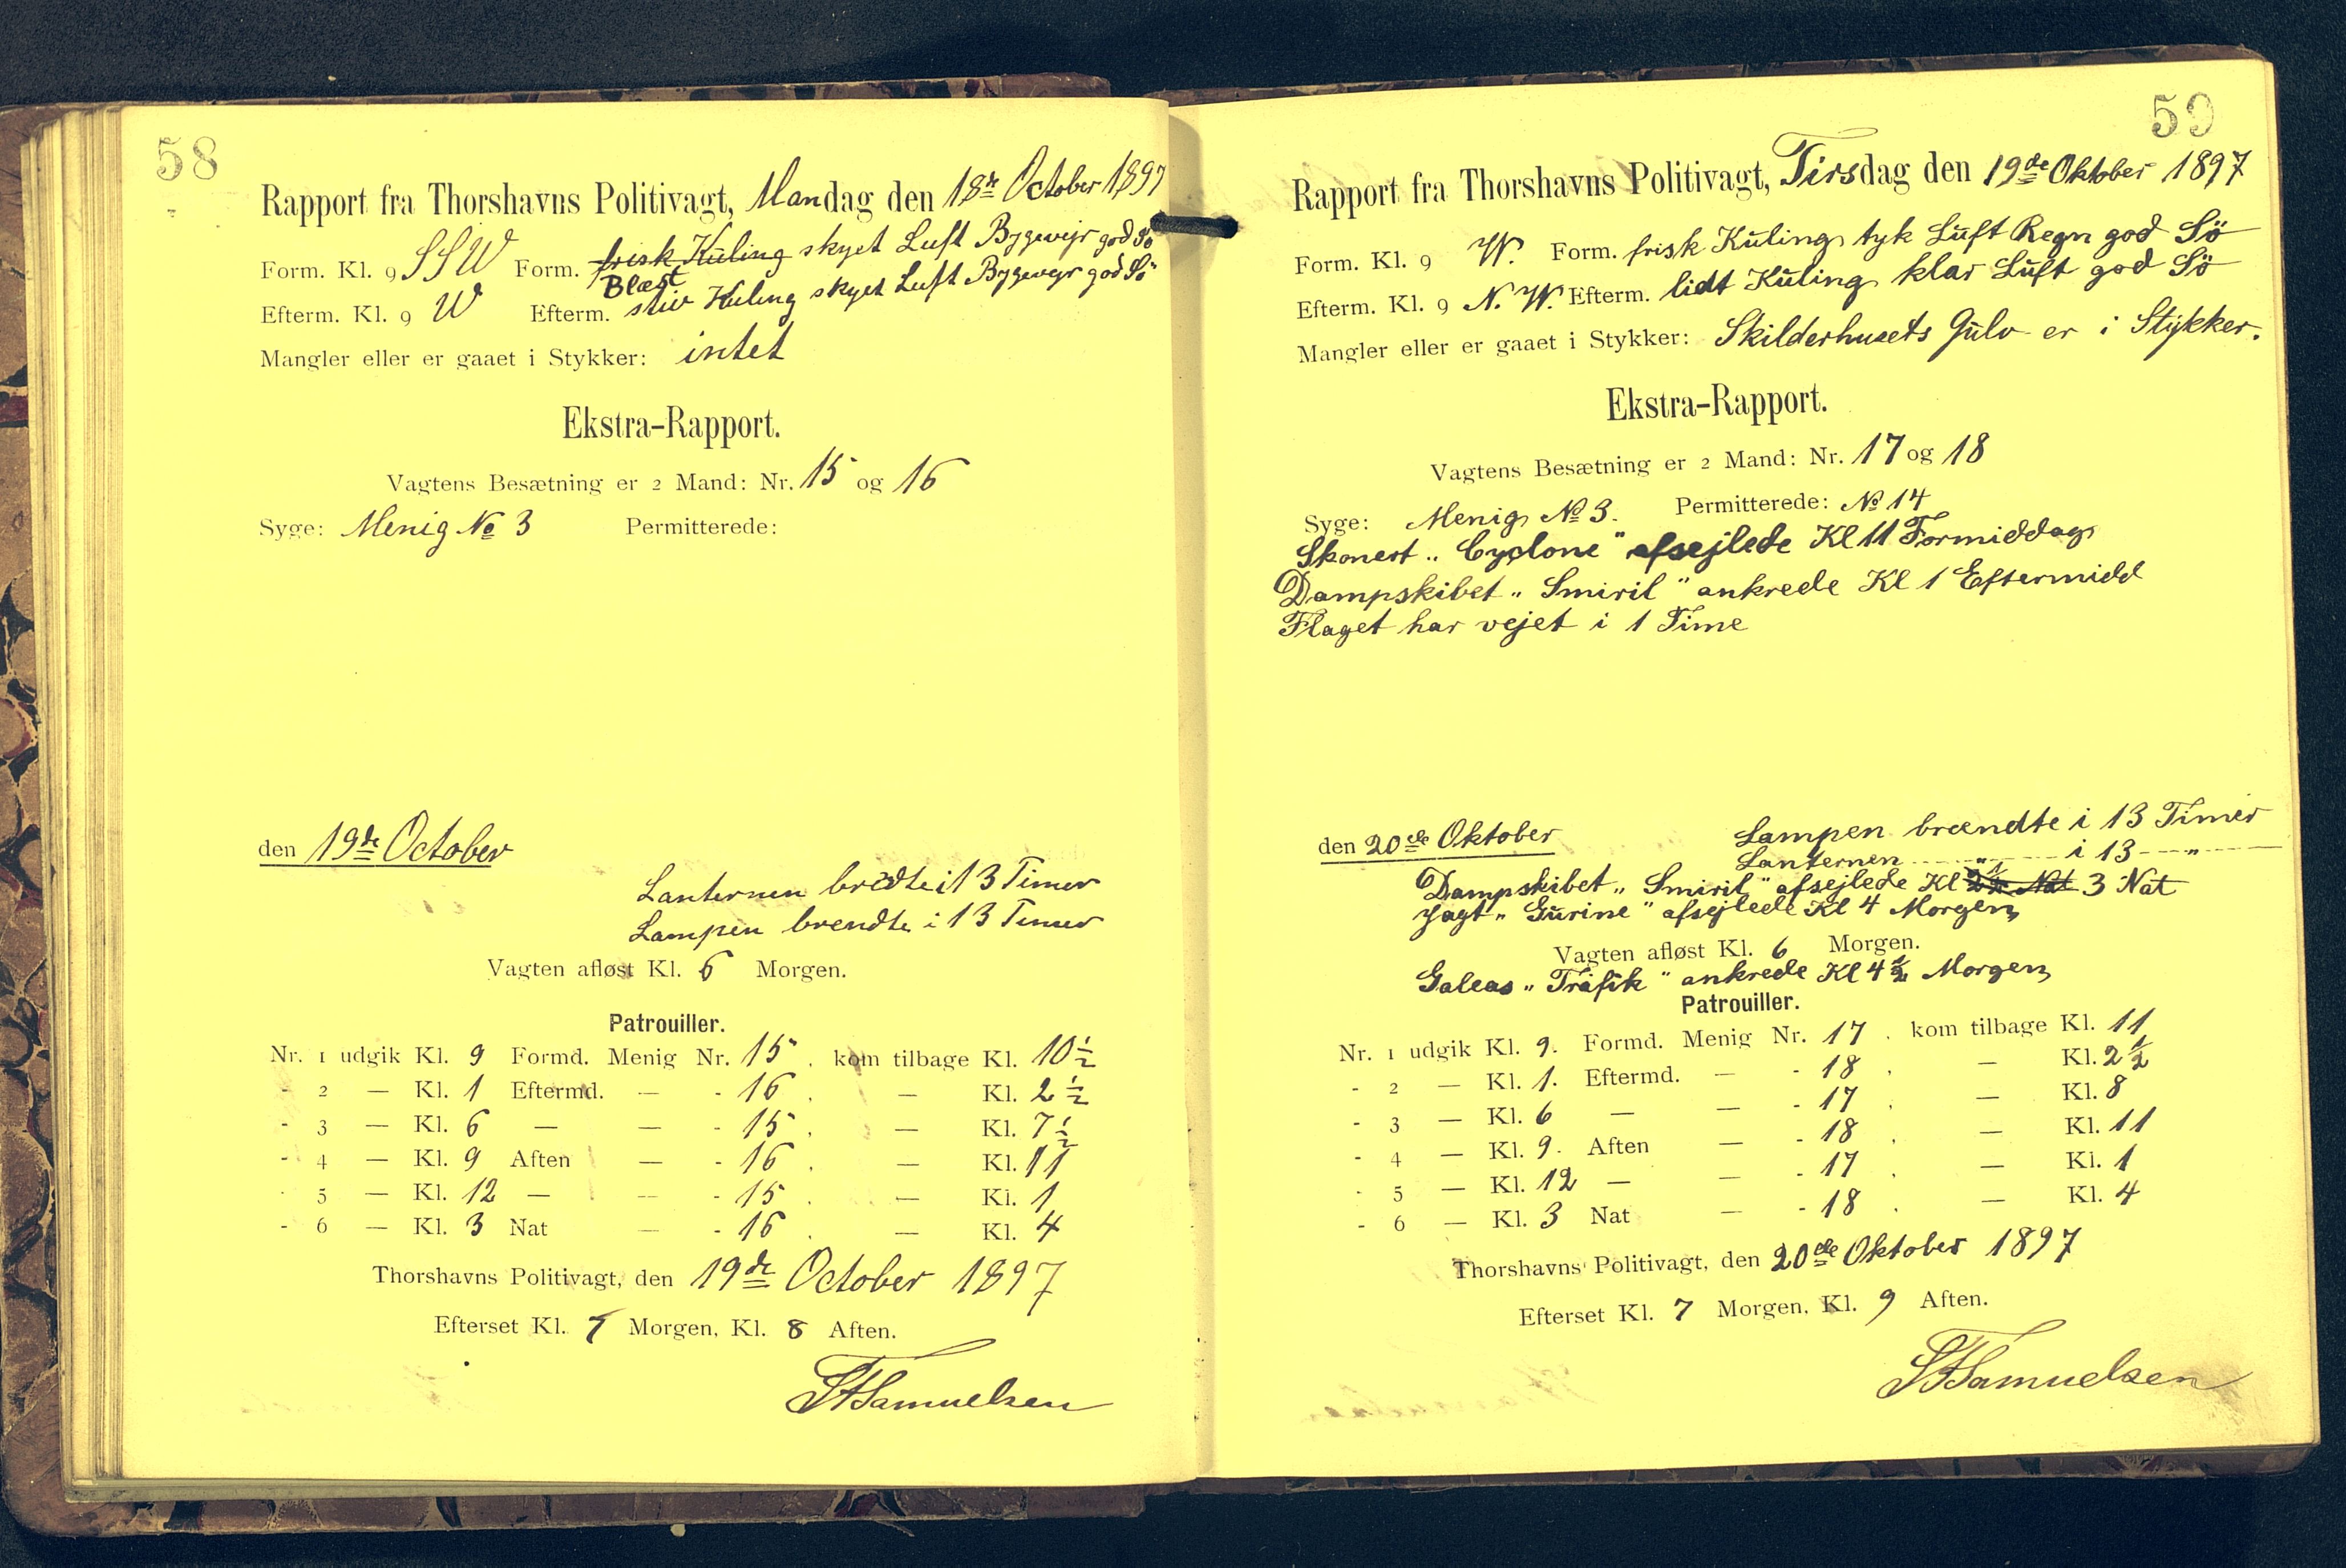 58
Rapport fra Thorshavns Politivagt, Mandag den 18de October 1897
Form. Kl. 9 SSW Form. frisk Kuling skyet Luft Bygevejr god Sö
Blæst
Efterm. Kl. 9 W Efterm. stiv Kuling skyet Luft Bygevejr god Sö
Mangler eller er gaaet i Stykker: intet
Ekstra-Rapport.
Vagtens Besætning er 2 Mand: Nr. 15 og 16
Syge: Menig No 3 Permitterede:
den 19de October
Lanternen brædte i 13 Timer
Lampen brendte i 13 Timer
Vagten afløst Kl. 6 Morgen.
Patrouiller.
Nr. 1 udgik Kl. 9 Formd. Menig Nr. 15 . kom tilbage Kl. 10 1/2
- 2 — Kl. 1 Eftermd. — - 16 . — Kl. 2 1/2
- 3 — Kl. 6 — — - 15 . — Kl. 7 1/2
- 4 — Kl. 9 Aften — - 16 . — Kl. 11
- 5 — Kl. 12 — — - 15 . — Kl. 1
- 6 — Kl. 3 Nat — - 16 . — Kl. 4
Thorshavns Politivagt, den 19de October 1897
Efterset Kl. 7 Morgen, Kl. 8 Aften.
Samuelsen
59
Rapport fra Thorshavns Politivagt, Tirsdag den 19de Oktober 1897
Form. Kl. 9 W. Form. frisk Kuling tyk Luft Regn god Sö
Efterm. Kl. 9 N. W. Efterm. lidt Kuling klar Luft god Sö
Mangler eller er gaaet i Stykker: Skilderhusets Gulv er i Stykker.
Ekstra-Rapport.
Vagtens Besætning er 2 Mand: Nr. 17 og 18
Syge: Menig No 3. Permitterede: No 14
Skonert „Cyclone" afsejlede Kl 11 Formiddag
Dampskibet „Smiril" ankrede Kl 1 Eftermidd
Flaget har vejet i 1 Time
den 20de Oktober
Lampen brændte i 13 Timer
Lanternen — " — i 13 — " —
Dampskibet „Smiril" afsejlede Kl 2 1/2 Nat 3 Nat
Jagt „Gurine" afsejlede Kl 4 Morgen
Vagten afløst Kl. 6 Morgen.
Galeas „Trafik" ankrede Kl 4 1/2 Morgen
Patrouiller.
Nr. 1 udgik Kl. 9. Formd. Menig Nr. 17 . kom tilbage Kl. 11
- 2 — Kl. 1. Eftermd. — - 18 . — Kl. 2 1/2
- 3 — Kl. 6 — — - 17 . — Kl. 8
- 4 — Kl. 9. Aften — - 18 . — Kl. 11
- 5 — Kl. 12 — — - 17 . — Kl. 1
- 6 — Kl. 3 Nat — - 18 . — Kl. 4
Thorshavns Politivagt, den 20de Oktober 1897
Efterset Kl. 7 Morgen, Kl. 9 Aften.
Samuelsen